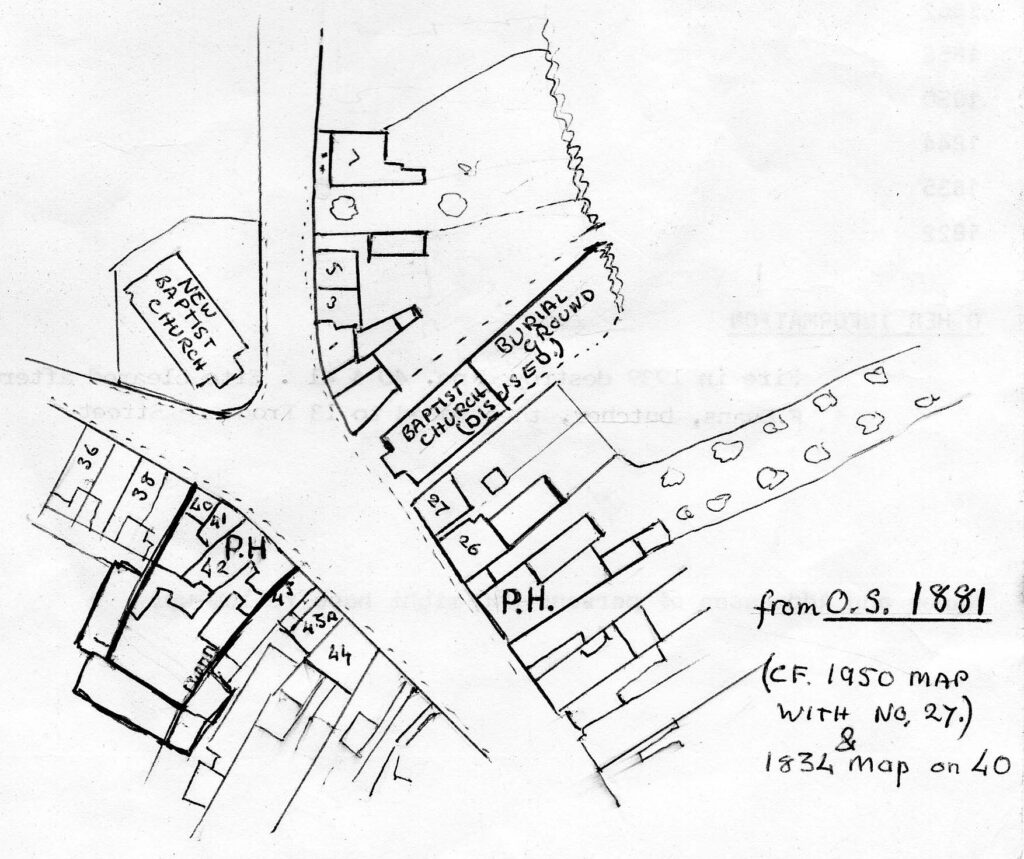 7
5
3
NEW
BAPTIST
CHURCH
BURIAL
GROUND
BAPTIST
CHURCH
(DISUSED.)
36
38
40
41
42
P.H
43
45A
44
27
26
P.H.
from O.S. 1881
(CF. 1950 MAP
WITH NO, 27.)
&
1834 Map on 40